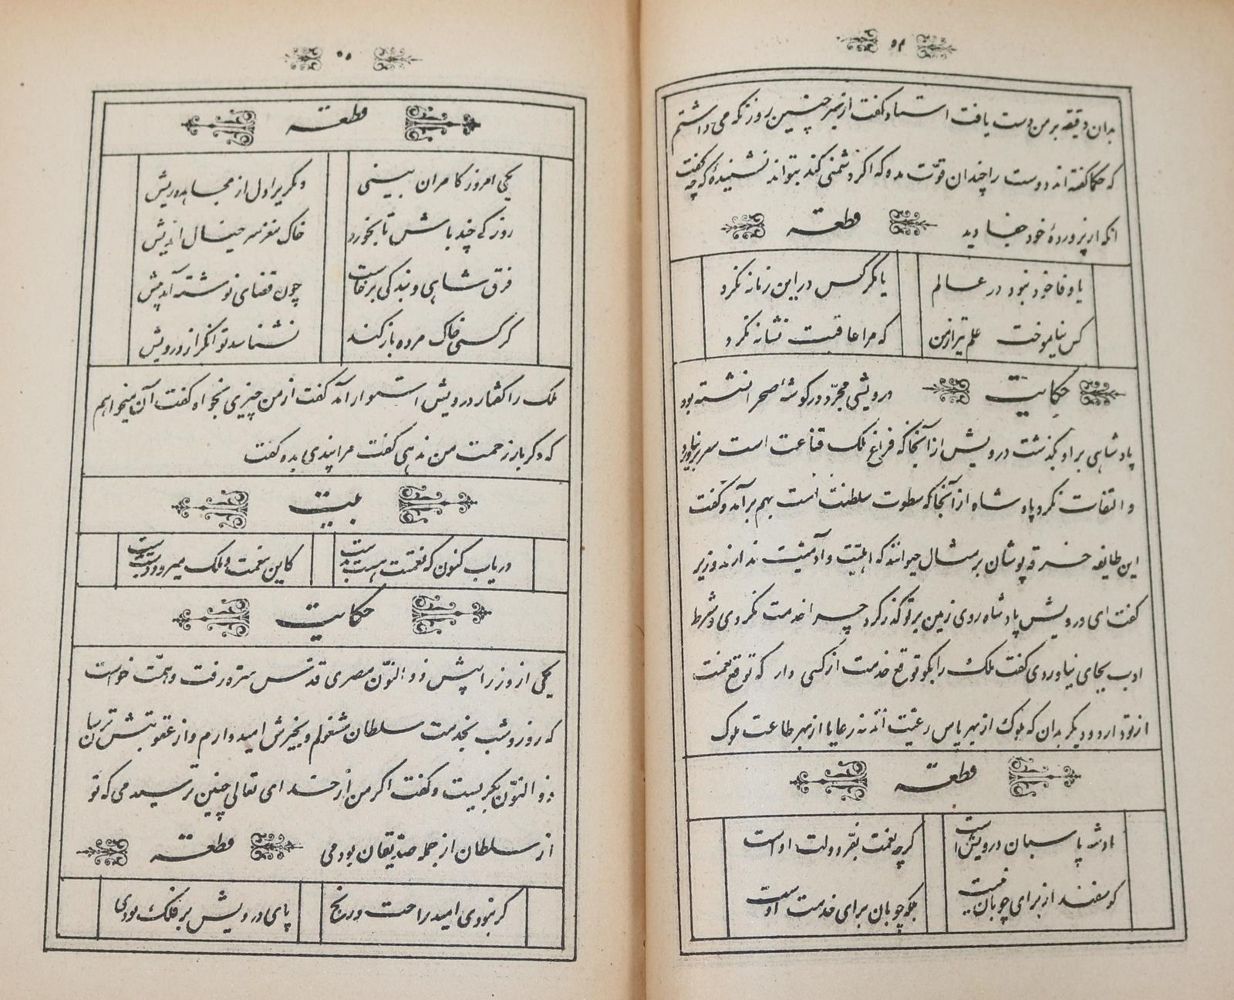 ۵۴
بدان دقیقه بر من دست یافت استاد گفت از بهر چنین روز نگه می داشتم
که حکما گفته اند دوست را چندان قوت مده که اگر دشمنی کند بتواند نشنیدهٔ که چه گفت
انکه از پروردهٔ خود جفا دید
قطعة
یا وفا خود نبود در عالم
یا مگر کس در این زمانه نکرد
کس نیاموخت علم تیر از من
که مرا عاقبت نشانه نکرد
حکایت
درویشی مجرّد در گوشهٔ صحرا نشسته بود
پادشاهی بر او بگذشت درویش از آنجا که فراغ ملک قناعت است سر بر نیاورد
و التفات نکرد پادشاه از آنجا که سطوت سلطنت است بهم برآمد و گفت
این طایفه خرقه پوشان بر مثال حیوانند که اهلیّت و آدمیّت ندارند وزیر
گفت ای درویش پادشاه روی زمین بر تو گذر کرد چرا خدمت نکردی و شرط
ادب بجای نیاوردی گفت ملک را بگو توقع خدمت از کسی دار که توقع نعمت
از تو دارد و دیگر بدان که ملوک از بهر پاس رعیّت اند نه رعایا از بهر طاعت ملوک
قطعة
پادشه پاسبان درویش است
گرچه نعمت بفرّ دولت اوست
گوسفند از برای چوپان نیست
بلکه چوپان برای خدمت اوست
۵۵
قطعة
یکی امروز کامران بینی
دیگریرا دل از مجاهده ریش
روزکی چند باش تا بخورد
خاک مغز سر خیال اندیش
فرق شاهی و بندگی برخاست
چون قضای نوشته آمد پیش
گر کسی خاک مرده باز کند
نشناسد توانگر از درویش
ملک را گفتار درویش استوار آمد گفت از من چیزی بخواه گفت آن میخواهم
که دگر بار زحمت من ندهی گفت مرا پندی بده گفت
بیت
دریاب کنون که نعمتت هست بدست
کاین نعمت و ملک میرود دست بدست
حکایت
یکی از وزرا پیش ذوالنّون مصری قدّس سرّه رفت و همّت خواست
که روز و شب بخدمت سلطان مشغولم و بخیرش امیدوارم و از عقوبتش ترسان
ذوالنّون بگریست و گفت اگر من از خدای تعالی چنین ترسیدمی که تو
از سلطان از جمله صدّیقان بودمی
قطعة
گر نبودی امید راحت و رنج
پای درویش بر فلک بودی